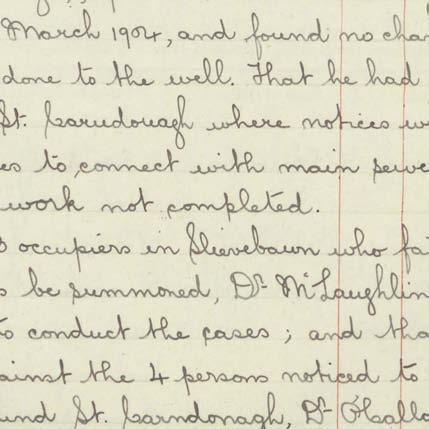 March 1904, and found no cha
done to the well. That he had
St. Carndonagh where notices w
es to connect with main sewe
work not completed.
occupiers in Slievebawn who fa
be summoned, Dr McLaughlin
to conduct the cases; and tha
ainst the 4 persons noticed to
und St. Carndonagh, Dr O'Callo